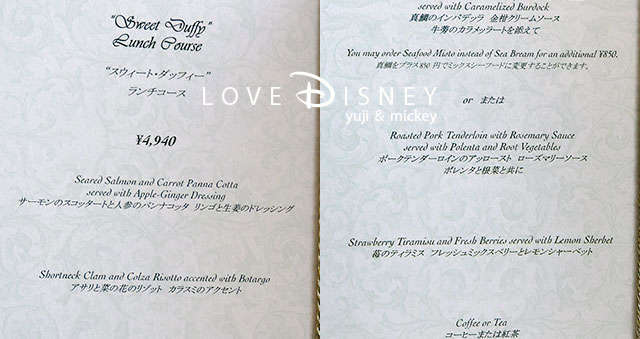 "Sweet Duffy"
Lunch Course
"スウィート・ダッフィー"
ランチコース
¥4,940
Seared Salmon and Carrot Panna Cotta
served with Apple-Ginger Dressing
サーモンのスコッタートと人参のパンナコッタ リンゴと生姜のドレッシング
Shortneck Clam and Colza Risotto accented with Botargo
アサリと菜の花のリゾット カラスミのアクセント
served with Caramelized Burdock
真鯛のインパデッラ 金柑クリームソース
牛蒡のカラメッラートを添えて
You may order Seafood Misto instead of Sea Bream for an additional ¥850.
真鯛をプラス850円でミックスシーフードに変更することができます。
or または
Roasted Pork Tenderloin with Rosemary Sauce
served with Polenta and Root Vegetables
ポークテンダーロインのアッロースト ローズマリーソース
ポレンタと根菜と共に
Strawberry Tiramisu and Fresh Berries served with Lemon Sherbet
苺のティラミス フレッシュミックスベリーとレモンシャーベット
Coffee or Tea
コーヒーまたは紅茶
LOVE DISNEY
yuji & mickey